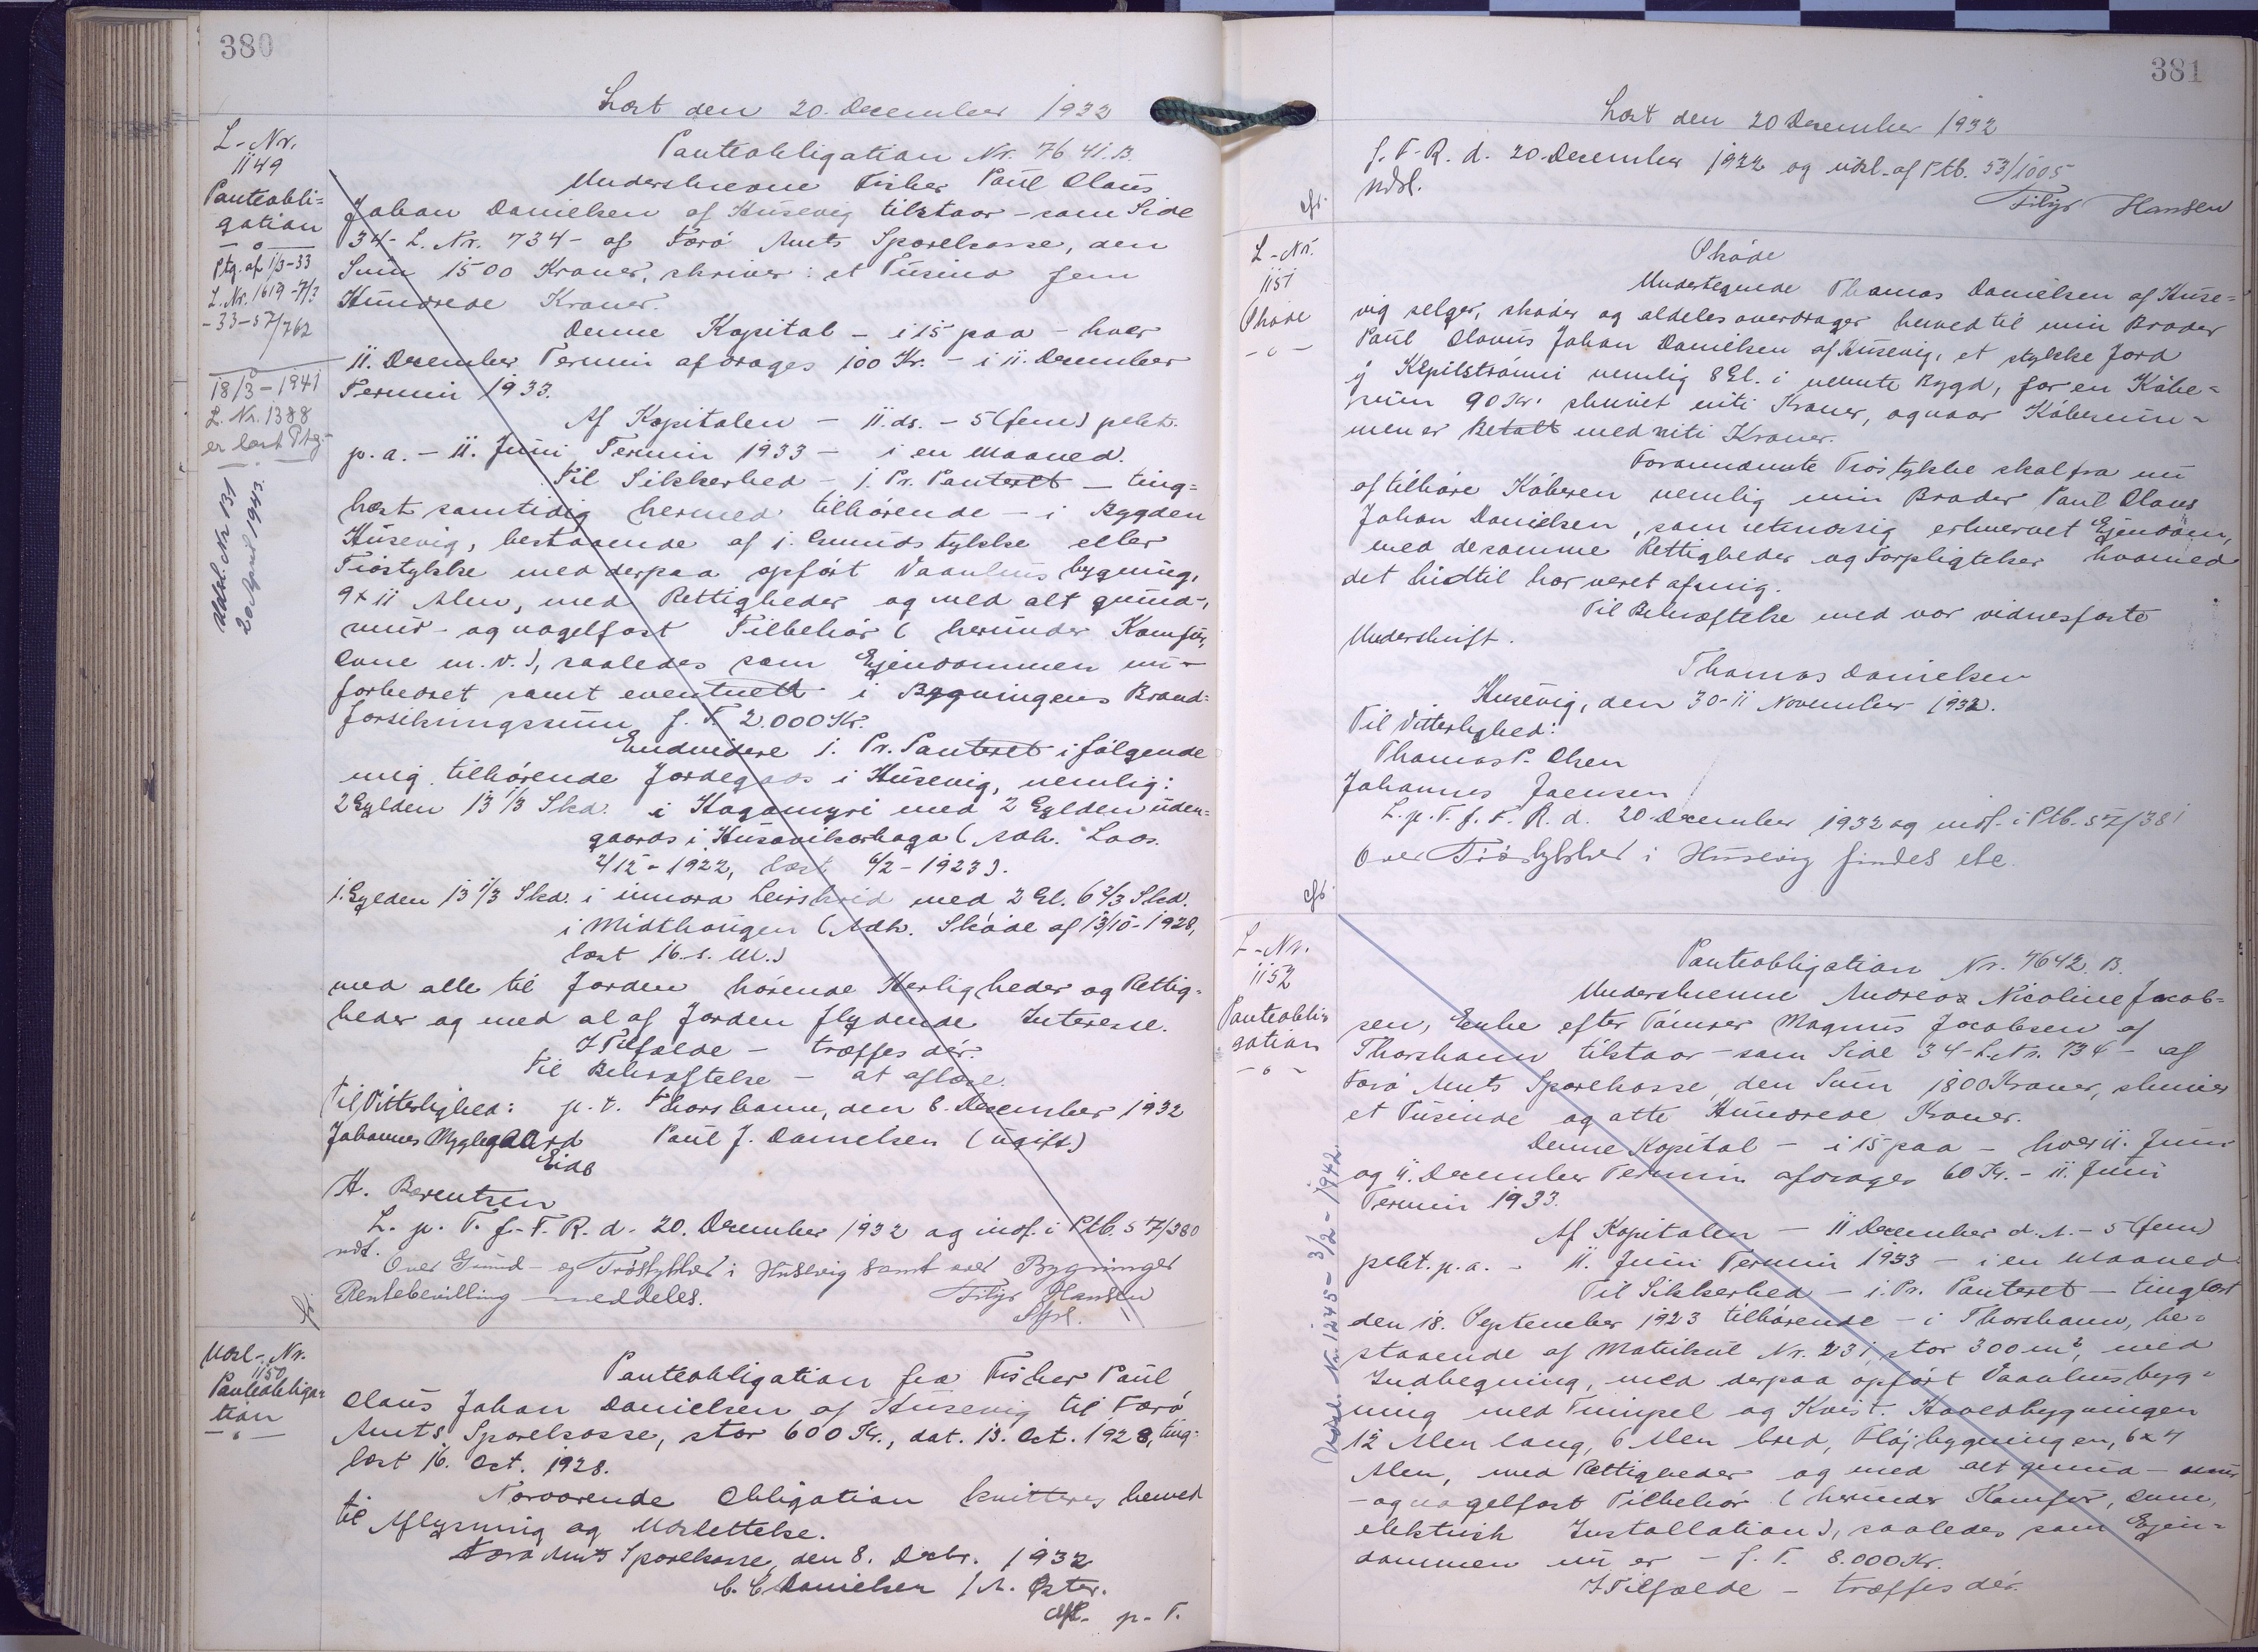 380
Læst den 20. December 1932
L-Nr.
1149
Panteobli=
gation
Ptg. af 1/3-33
L. Nr. 1619 -7/3
-33-57/762
18/3-1941
L. Nr. 1388
er læst Ptg.
Udsl. Nr 131
20 April 1943.
Panteobligation Nr. 7641.B.
Underskrevne Fisker Paul Olaus
Johan Danielsen af Husevig tilstaar - som Side
34- L. Nr. 734- af Færø Amts Sparekasse, den
Sum 1500 Kroner, skriver: et Tusind fem
Hundrede Kroner.
Denne Kapital - i 15 paa - hver
11. December Termin afdrages 100 Kr. - i 11. December
Termin 1933.
Af Kapitalen - 11. ds. - 5 (fem) pCt.
p.a. - 11. Juni Termin 1933 - i en Maaned.
Til Sikkerhed - 1. Pr. Panteret - ting=
læst samtidig hermed tilhørende - i Bygden
Húsevig, bestaaende af 1. Grundstykke eller
Trøstykke med derpaa opført Vaanhusbygning,
9 x 11 Alen, med Rettigheder og med alt grund-,
mur- og nagelfast Tilbehør (herunder Komfur,
Ovne m.v.), saaledes som Ejendommen nu -
forbedret samt eventuelt i Bygningens Brand=
forsikringssum f. T. 2.000 Kr.
Endvidere 1. Pr. Panteret i følgende
mig tilhørende Jordegods i Húsevig, nemlig:
2 Gylden 13 1/3 Skd. i Hagamyri med 2 Gylden uden=
gaards i Húsavikarhaga (Adk. Laas.
2/12 - 1922, læst 6/2 - 1923).
1. Gylden 13 1/3 Skd. i innara Leirskrid med 2 Gl. 6 2/3 Skd.
i Midthaugen (Adk. Skøde af 13/10-1928,
læst 16. s. M.)
med alle til Jorden hørende Herligheder og Rettig=
heder og med al af Jorden flydende Interesse.
I Tilfælde - træffes dér.
Til Bekræftelse - at aflæse.
Til Vitterlighed: p.t. Thorshavn, den 8. December 1932
Johannes Mykjegaard Paul J. Danielsen (ugift)
Eide
H. Berentsen
L. p. T. f. F. R. d. 20. December 1932 og indf. i Ptb. 57/380
ndt.
Over Grund- og Trøstykket i Husevig samt over Bygninger
Rentebevilling meddeles. Filip Hansen
Udsl-Nr.
1150
Panteobliga=
tion
Panteobligation fra Fisker Paul
Olaus Johan Danielsen af Húsevig til Færø
Amts Sparekasse, stor 600 Kr., dat. 13. Oct. 1928, ting-
læst 16. Oct. 1928.
Nærværende Obligation kvitteres hermed
til Aflysning og Udslettelse.
Færø Amts Sparekasse, den 8. Decbr. 1932
C. C Danielsen / A. Øster.
p. T.
381
Læst den 20 December 1932
f. F. R. d. 20. December 1922 og udsl. af Ptb. 53/1005
ndsl.
Filip Hansen
L-Nr.
1151
Skøde
Skøde
Undertegnede Thomas Danielsen af Huse=
vig selger, skøder og aldeles overdrager herved til min Broder
Paul Olavus Johan Danielsen af Husevig, et stykke Jord
ý Kepilstrømmi nemlig 8 Gl. i nevnte Bygd, for en Købe=
sum 90 Kr. skrivet niti Kroner, og naar Købesum-
men er Betalt med niti Kroner.
Forannævnte Trøstykke skal fra nu
af tilhøre Køberen nemlig min Broder Paul Olaus
Johan Danielsen, som retmæsig erhvervet Ejendom,
med desamme Rettigheder og Forpligtelser hvormed
det hidtil har veret af mig.
Til Bekræftelse med vor vidnesfaste
Underskrift.
Thomas Danielsen
Husevig, den 30-11 November 1932.
Til Vitterlighed:
Thomas P. Olsen
Johannes Joensen
L. p. T. f. F. R. d. 20 December 1932 og indf. i Ptb. 57/381
Over Trøstykket i Husevig findes ete
L-Nr.
1152
Panteobli=
gation
Udsl. Nr. 1245 - 3/2 - 1942.
Panteobligation Nr. 7642. B.
Underskrevne Andrea Nicoline Jacob=
sen, Enke efter Tømrer Magnus Jacobsen af
Thorshavn tilstaar - som Side 34- L.Nr. 734 - af
Færø Amts Sparekasse, den Sum 1800 Kroner, skriver
et Tusinde og otte Hundrede Kroner.
Denne Kapital - i 15 paa - hver 11. Juni
og 11. December Termin afdrages 60 Kr. - 11. Juni
Termin 1933.
Af Kapitalen - 11 December d.A. - 5 (fem)
pCt. p.a. - 11. Juni Termin 1933 - i en Maaned
Til Sikkerhed - 1. Pr. Panteret - tinglæst
den 18. September 1923 tilhørende - i Thorshavn, be=
staaende af Matrikul Nr. 231, stor 300 m², med
Indhegning, med derpaa opført Vaanhusbyg=
ning med Timpel og Kvist. Hovedbygningen
12 Alen lang, 6 Alen bred, Fløjbygningen, 6 x 4
Alen, med Rettigheder og med alt grund- mur
- og nagelfast Tilbehør (herunder Komfur, Ovne,
elektrisk Installation), saaledes som Ejen=
dommen nu er - f. T. 8.000 Kr.
I Tilfælde - træffes dér.